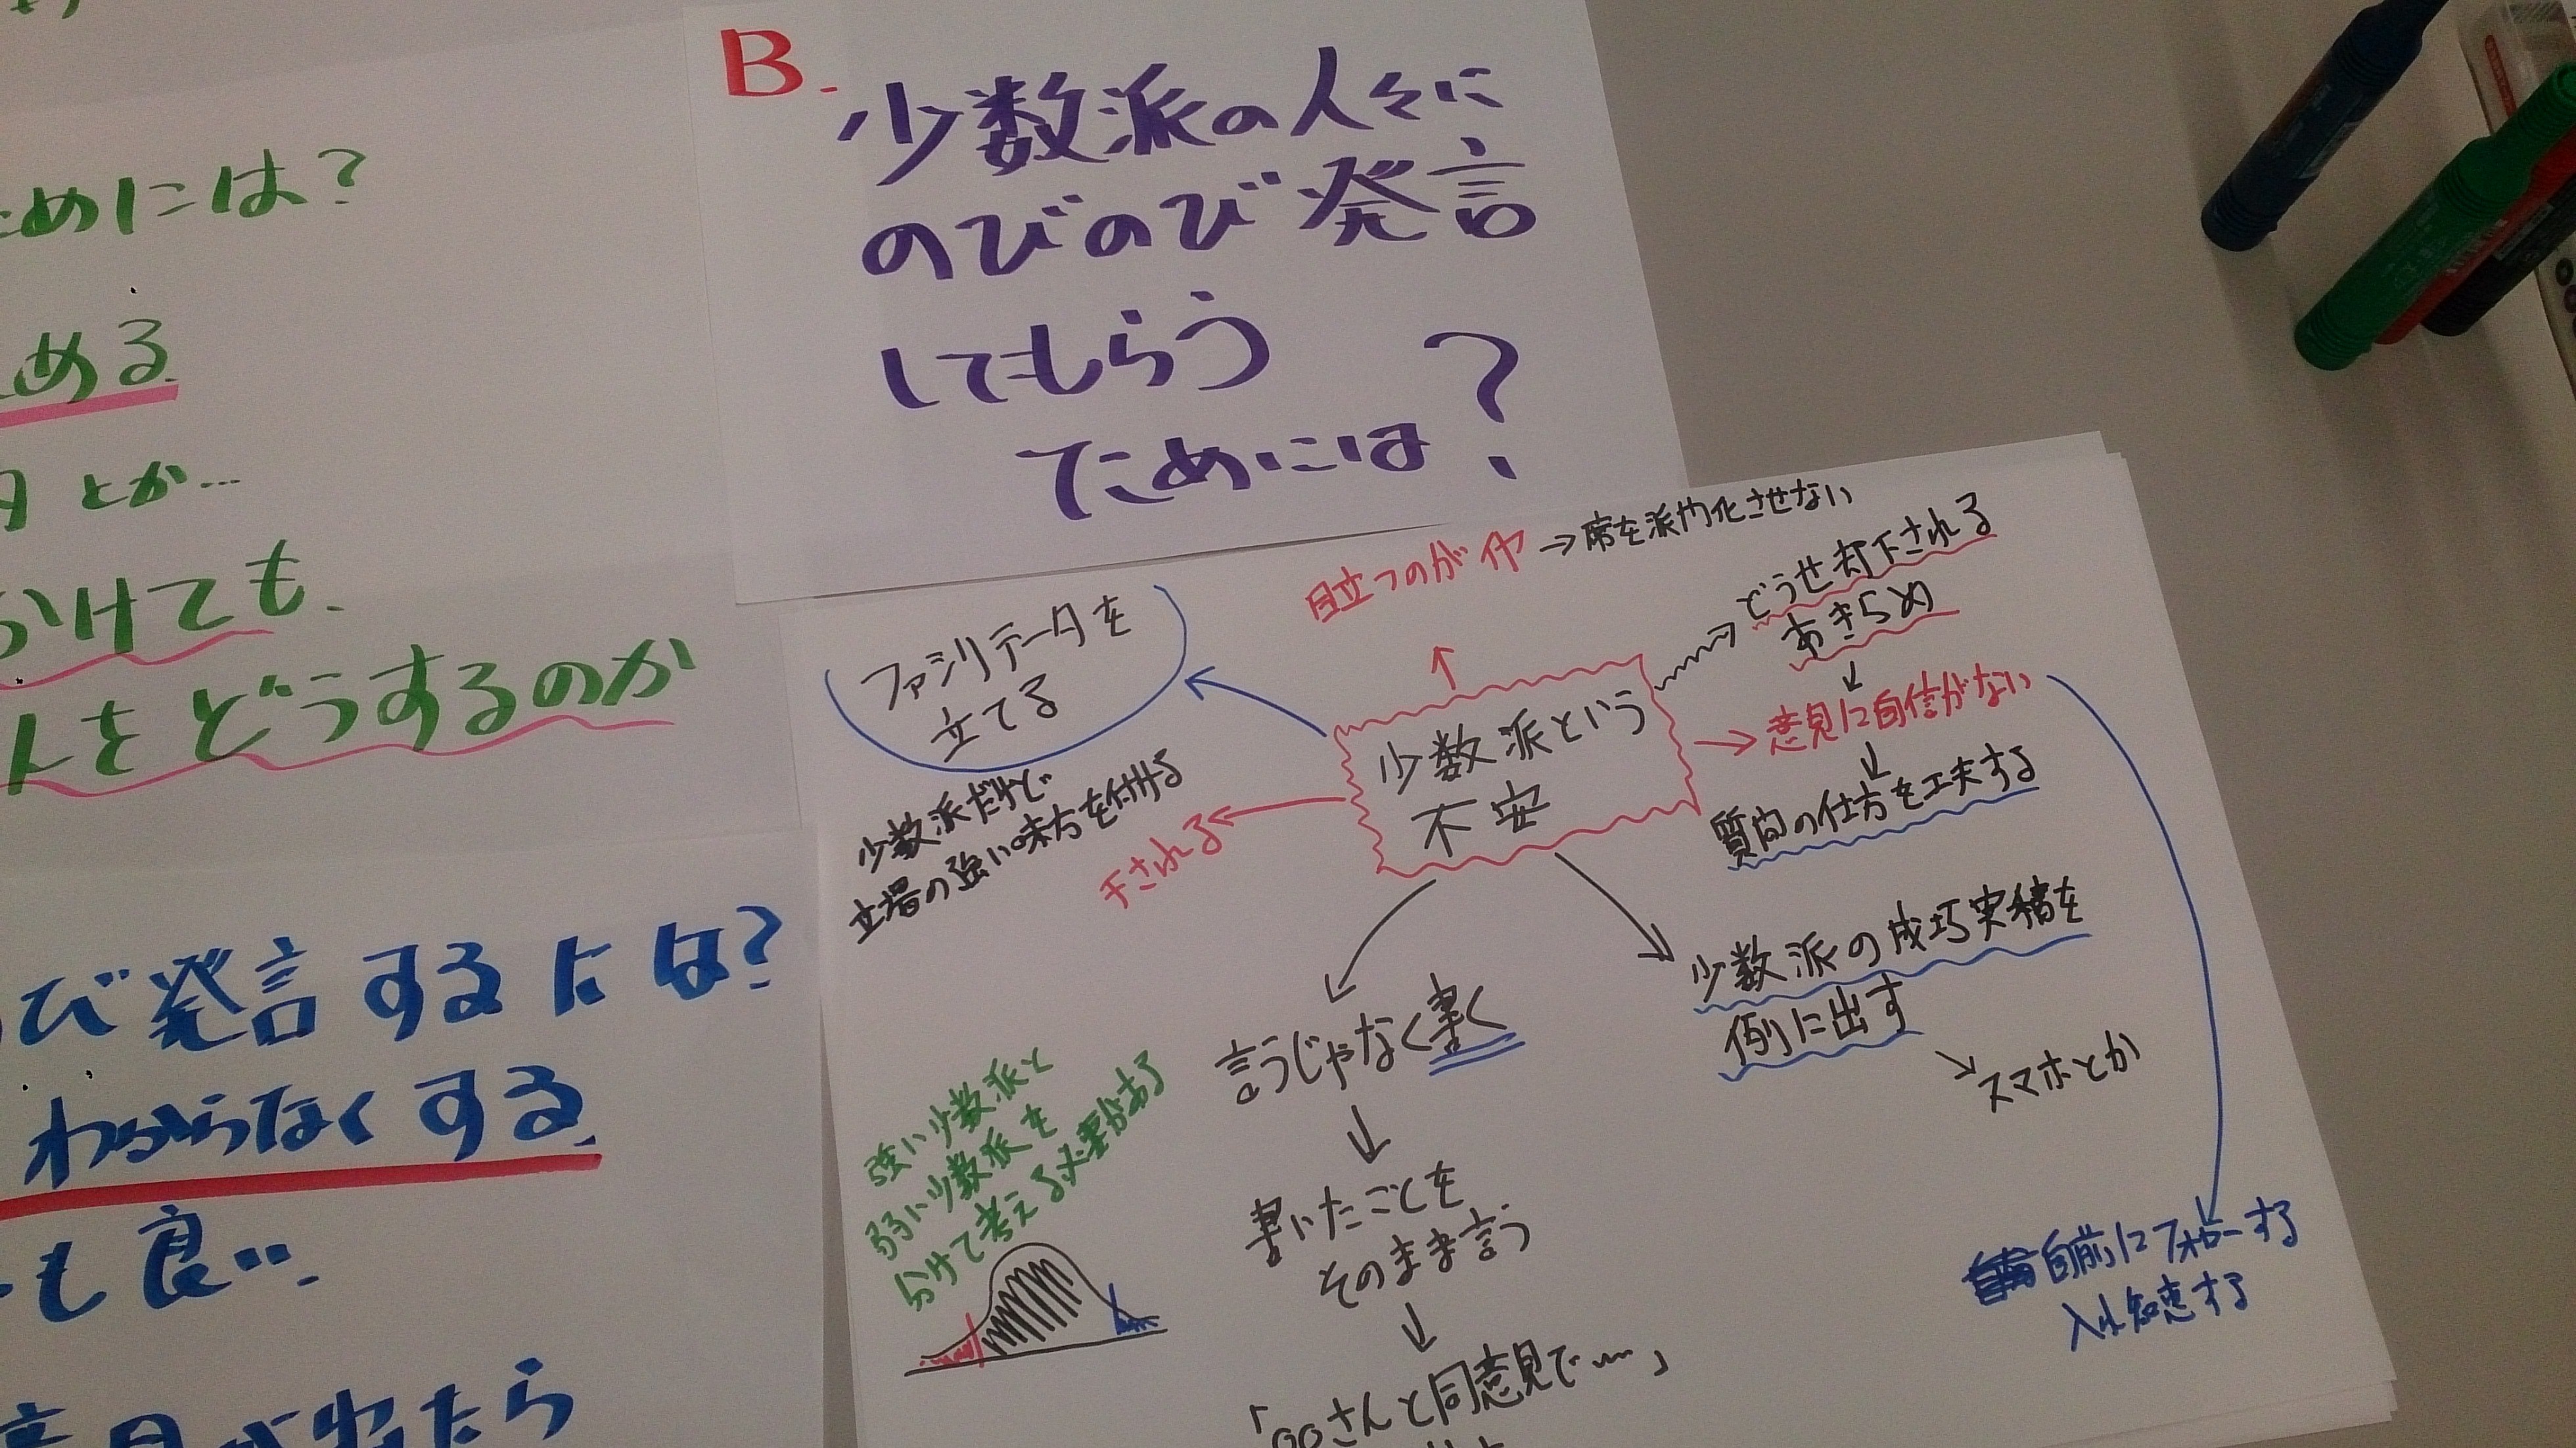 ためには?
める
とか…
かけても、
人をどうするのか
び発言するには?
わからなくする。
も良い。
意見が出たら
B.
少数派の人々に
のびのび発言
してもらう
ためには?
目立つのがイヤ→席を派閥化させない
どうせ却下される
あきらめ
意見に自信がない
質問の仕方を工夫する
ファシリテータを
立てる
少数派という
不安
少数派だけど
立場の強い味方を付ける
干される
少数派の成功実績を
例に出す
スマホとか
言うじゃなく書く
書いたことを
そのまま言う
「○○さんと同意見で〜」
強い少数派と
弱い少数派を
分けて考える必要がある
前にフォローする
入れ知恵する